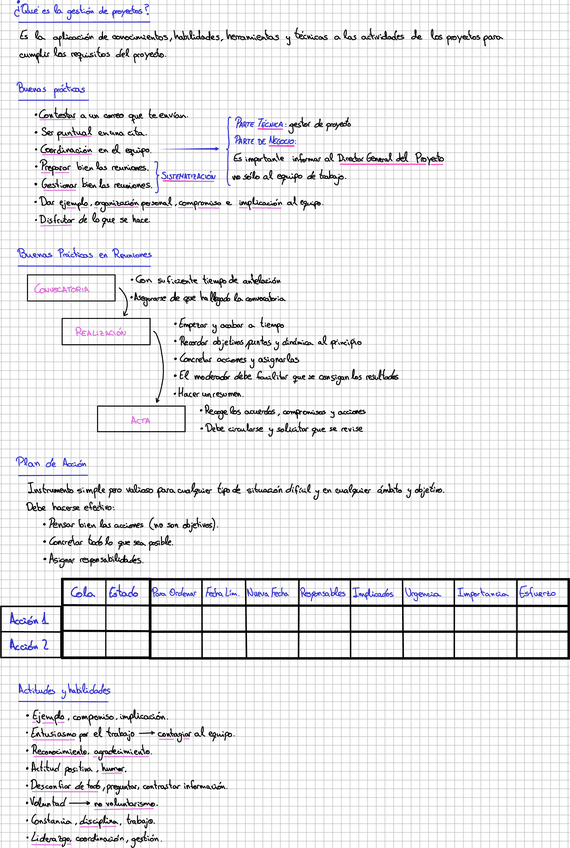 ¿Qué es la gestión de proyectos?
Es la aplicación de conocimientos, habilidades, herramientas y técnicas a las actividades de los proyectos para
cumplir los requisitos del proyecto.
Buenas prácticas
• Contestar a un correo que te envían.
• Ser puntual en una cita.
• Coordinación en el equipo.
• Preparar bien las reuniones.
• Gestionar bien las reuniones.
SISTEMATIZACIÓN
PARTE TÉCNICA: gestor de proyecto
PARTE DE NEGOCIO:
Es importante informar al Director General del Proyecto
no sólo al equipo de trabajo.
• Dar ejemplo, organización personal, compromiso e implicación al equipo.
• Disfrutar de lo que se hace.
Buenas Prácticas en Reuniones
CONVOCATORIA
• Con suficiente tiempo de antelación
• Asegurarse de que ha llegado la convocatoria
REALIZACIÓN
• Empezar y acabar a tiempo
• Recordar objetivos, puntos y dinámica al principio
• Concretar acciones y asignarlas
• El moderador debe facilitar que se consigan los resultados
• Hacer un resumen.
ACTA
• Recoge los acuerdos, compromisos y acciones
• Debe circularse y solicitar que se revise
Plan de Acción
Instrumento simple pero valioso para cualquier tipo de situación difícil y en cualquier ámbito y objetivo.
Debe hacerse efectivo:
• Pensar bien las acciones (no son objetivos).
• Concretar todo lo que sea posible.
• Asignar responsabilidades.
Cola Estado Para Ordenar Fecha Lím. Nueva Fecha Responsables Implicados Urgencia Importancia Esfuerzo
Acción 1
Acción 2
Actitudes y habilidades
• Ejemplo, compromiso, implicación.
• Entusiasmo por el trabajo → contagiar al equipo.
• Reconocimiento, agradecimiento.
• Actitud positiva, humor.
• Desconfiar de todo, preguntar, contrastar información.
• Voluntad → no voluntarismo.
• Constancia, disciplina, trabajo.
• Liderazgo, coordinación, gestión.